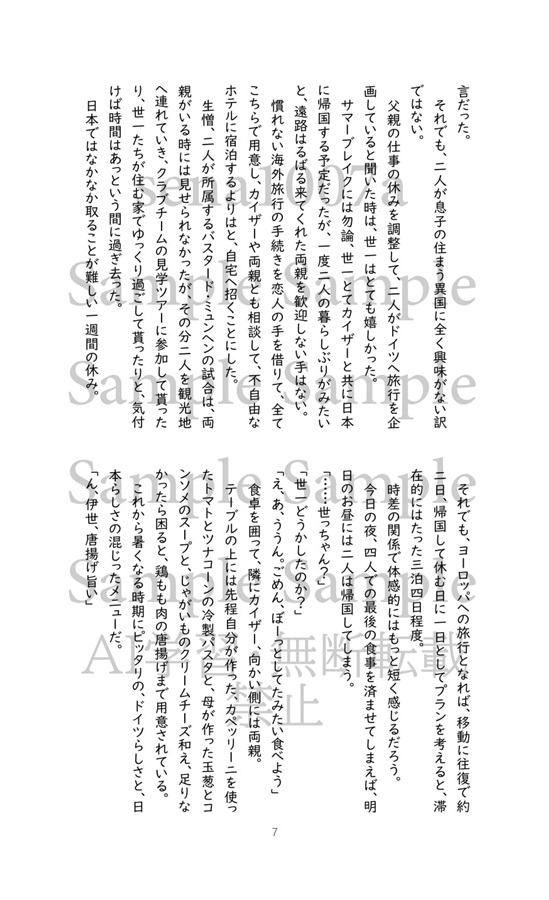 言だった。
　それでも、二人が息子の住まう異国に全く興味がない訳
ではない。
　父親の仕事の休みを調整して、二人がドイツへ旅行を企
画していると聞いた時は、世一はとても嬉しかった。
　サマーブレイクには勿論、世一とてカイザーと共に日本
に帰国する予定だったが、一度二人の暮らしぶりがみたい
と、遠路はるばる来てくれた両親を歓迎しない手はない。
　慣れない海外旅行の手続きを恋人の手を借りて、全て
こちらで用意し、カイザーや両親とも相談して、不自由な
ホテルに宿泊するよりはと、自宅へ招くことにした。
　生憎、二人が所属するバスタード・ミュンヘンの試合は、両
親がいる時には見せられなかったが、その分二人を観光地
へ連れていき、クラブチームの見学ツアーに参加して貰った
り、世一たちが住む家でゆっくり過ごして貰ったりと、気付
けば時間はあっという間に過ぎ去った。
　日本ではなかなか取ることが難しい一週間の休み。
　それでも、ヨーロッパへの旅行となれば、移動に往復で約
二日、帰国して休む日に一日としてプランを考えると、滞
在的にはたった三泊四日程度。
　時差の関係で体感的にはもっと短く感じるだろう。
　今日の夜、四人での最後の食事を済ませてしまえば、明
日のお昼には二人は帰国してしまう。
「……世っちゃん？」
「世一どうかしたのか？」
「え、あ、ううん。ごめん、ぼーっとしてたみたい食べよう」
　食卓を囲って、隣にカイザー、向かい側には両親。
　テーブルの上には先程自分が作った、カペッリーニを使っ
たトマトとツナコーンの冷製パスタと、母が作った玉葱とコ
ンソメのスープと、じゃがいものクリームチーズ和え、足りな
かったら困ると、鶏もも肉の唐揚げまで用意されている。
　これから暑くなる時期にピッタリの、ドイツらしさと、日
本らしさの混じったメニューだ。
「ん、伊世、唐揚げ旨い」
7
sena1007a
Sample Sample
Sample Sample
Sample Sample
Sample Sample
AI学習・無断転載
禁止